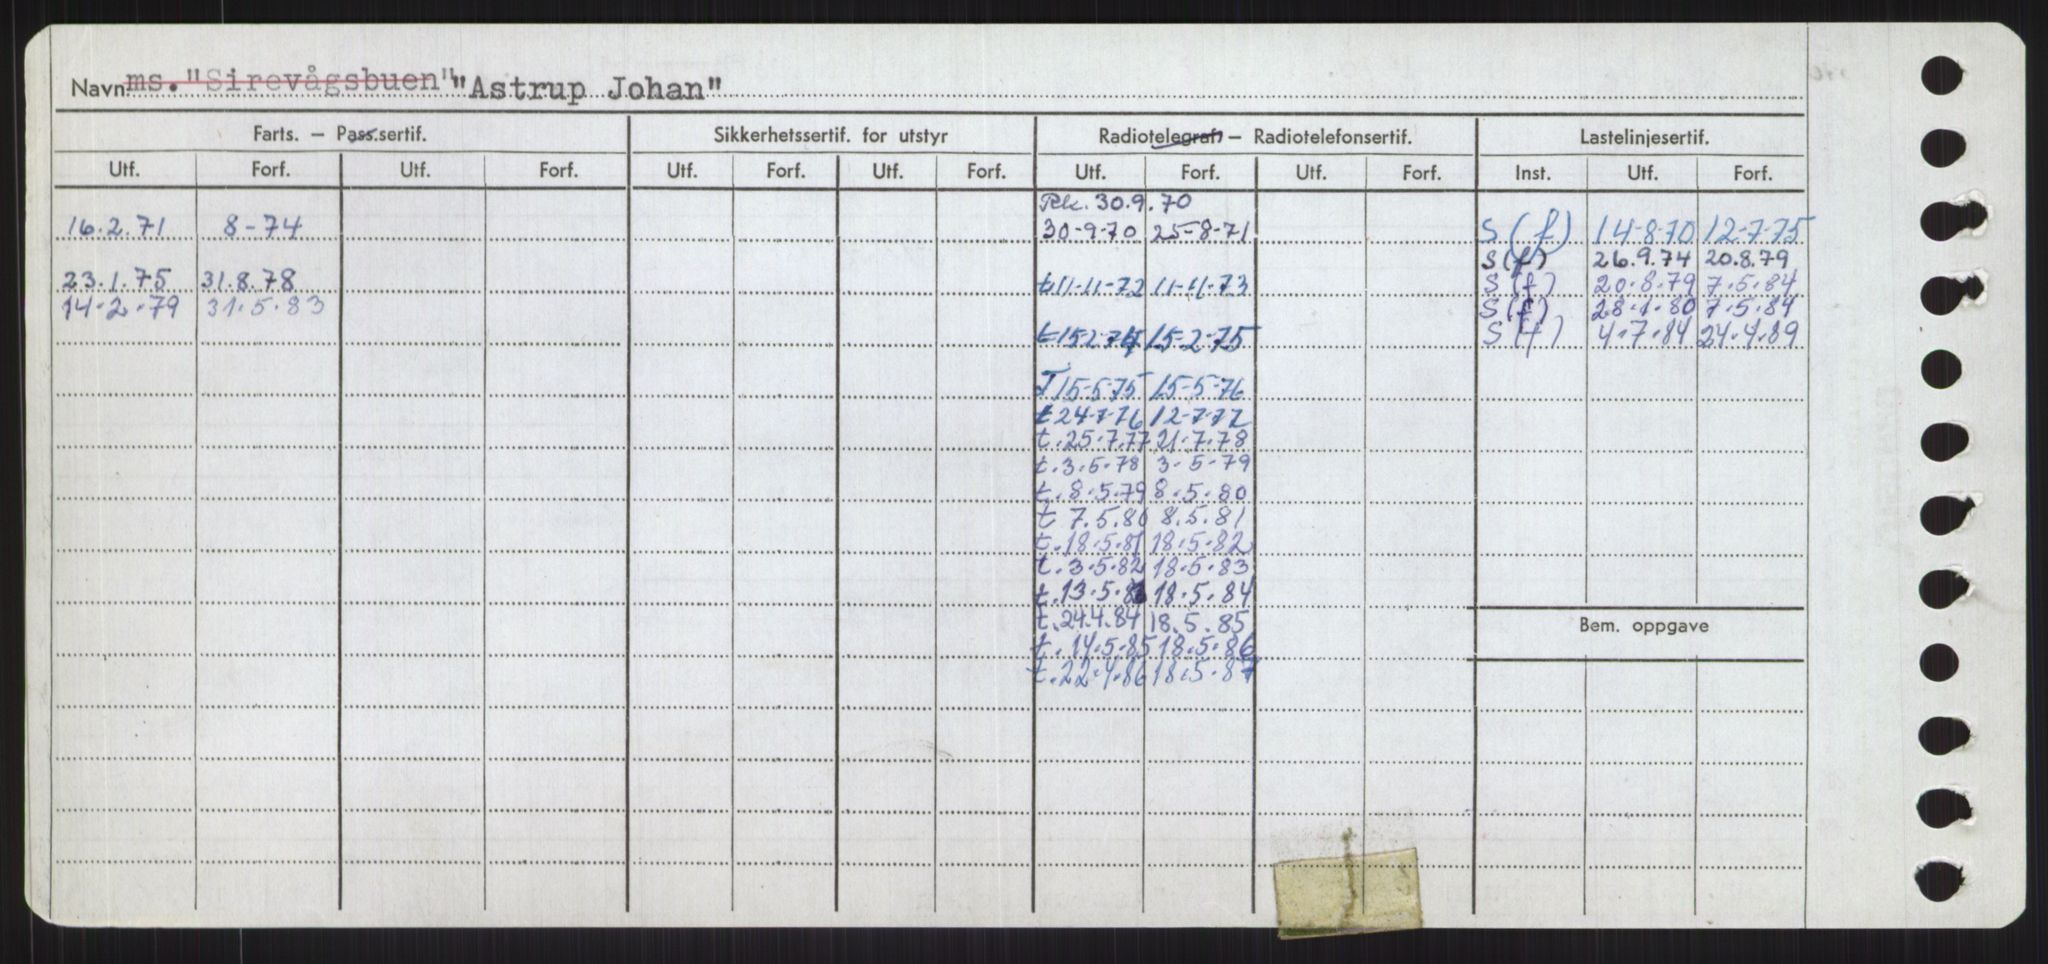 Navn ms. "Sirevågsbuen" "Astrup Johan"
Farts. – Pass.sertif. Sikkerhetssertif. for utstyr Radiotelegrafi – Radiotelefonsertif. Lastelinjesertif.
Utf. Forf. Utf. Forf. Utf. Forf. Utf. Forf. Utf. Forf. Utf. Forf. Inst. Utf. Forf.
30.9.70
16.2.71 8-74 30-9-70 25-8-71 S (f) 14-8-70 12-7-75
S (f) 26.9.74 20.8.79
23.1.75 31.8.78 t 11-11-72 11-11-73 S (f) 20.8.79 7.5.84
14.2.79 31.5.83 S (f) 28.1.80 7.5.84
t 15-2-74 15-2-75 S (f) 4.7.84 24.4.89
T 15-5-75 15-5-76
t 24-7-76 12-7-77
t. 25.7.77 21.7.78
t. 3.5.78 3.5.79
t. 8.5.79 8.5.80
t 7.5.80 8.5.81
t. 18.5.81 18.5.82
t. 3.5.82 18.5.83
t. 13.5.83 18.5.84
t. 24.4.84 18.5.85
Bem. oppgave
t. 14.5.85 18.5.86
t. 22.4.86 18.5.87